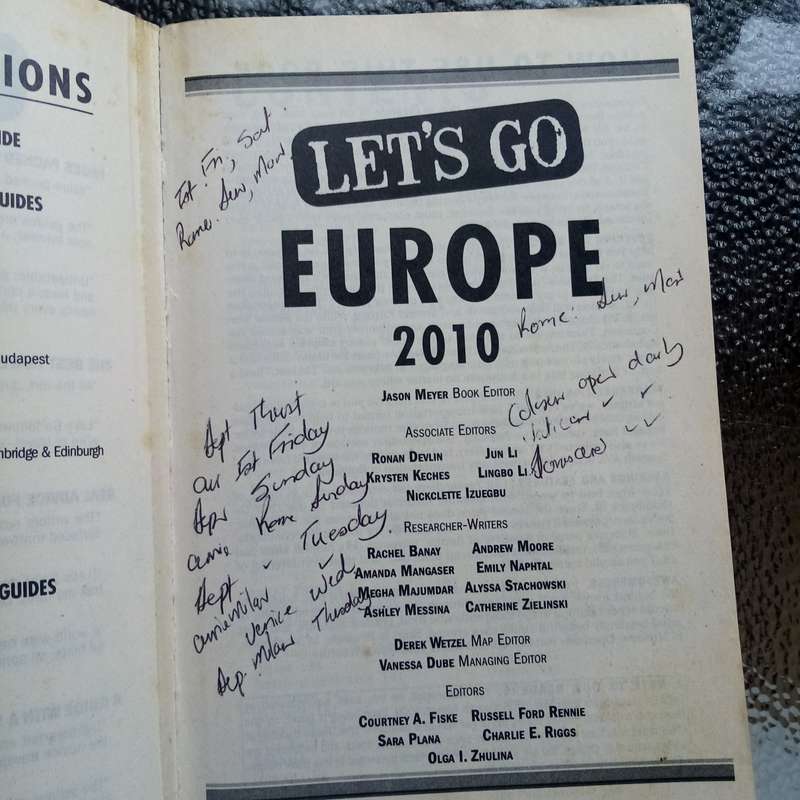 IONS
IDE
UIDES
udapest
nbridge & Edinburgh
GUIDES
Ist: Fri, Sat.
Rome: Sun, Mon
LET'S GO
EUROPE
2010
Rome: Sun, Mon
JASON MEYER BOOK EDITOR
ASSOCIATE EDITORS
RONAN DEVLIN JUN LI
KRYSTEN KECHES LINGBO LI
NICKCLETTE IZUEGBU
open daily
Dept Thurst
Ist Friday
Sunday
Rome Sunday
Dept Tuesday
Milan
Venice Wed
Dep. Milan Thursday
RESEARCHER-WRITERS
RACHEL BANAY ANDREW MOORE
AMANDA MANGASER EMILY NAPHTAL
MEGHA MAJUMDAR ALYSSA STACHOWSKI
ASHLEY MESSINA CATHERINE ZIELINSKI
DEREK WETZEL MAP EDITOR
VANESSA DUBE MANAGING EDITOR
EDITORS
COURTNEY A. FISKE RUSSELL FORD RENNIE
SARA PLANA CHARLIE E. RIGGS
OLGA I. ZHULINA